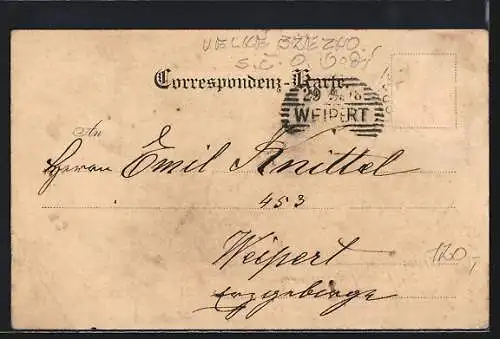 VELKÉ BŘEZNO
S.Č.O.
Correspondenz-Karte.
29
WEIPERT
An
Herrn Emil Knittel
453
Weipert
Erzgebirge
120,-